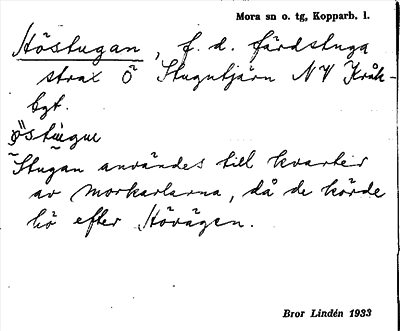 Mora sn o. tg, Kopparb. l.
Höstugan, f. d. färdstuga
strax Ö Stugutjärn NV Kråk-
bgt.
Stugan användes till kvarter
av morkarlarna, då de körde
hö efter Hövägen.
Bror Lindén 1933